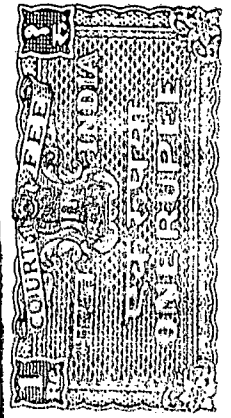 COURT FEE
INDIA
एक रुपया
ONE RUPEE